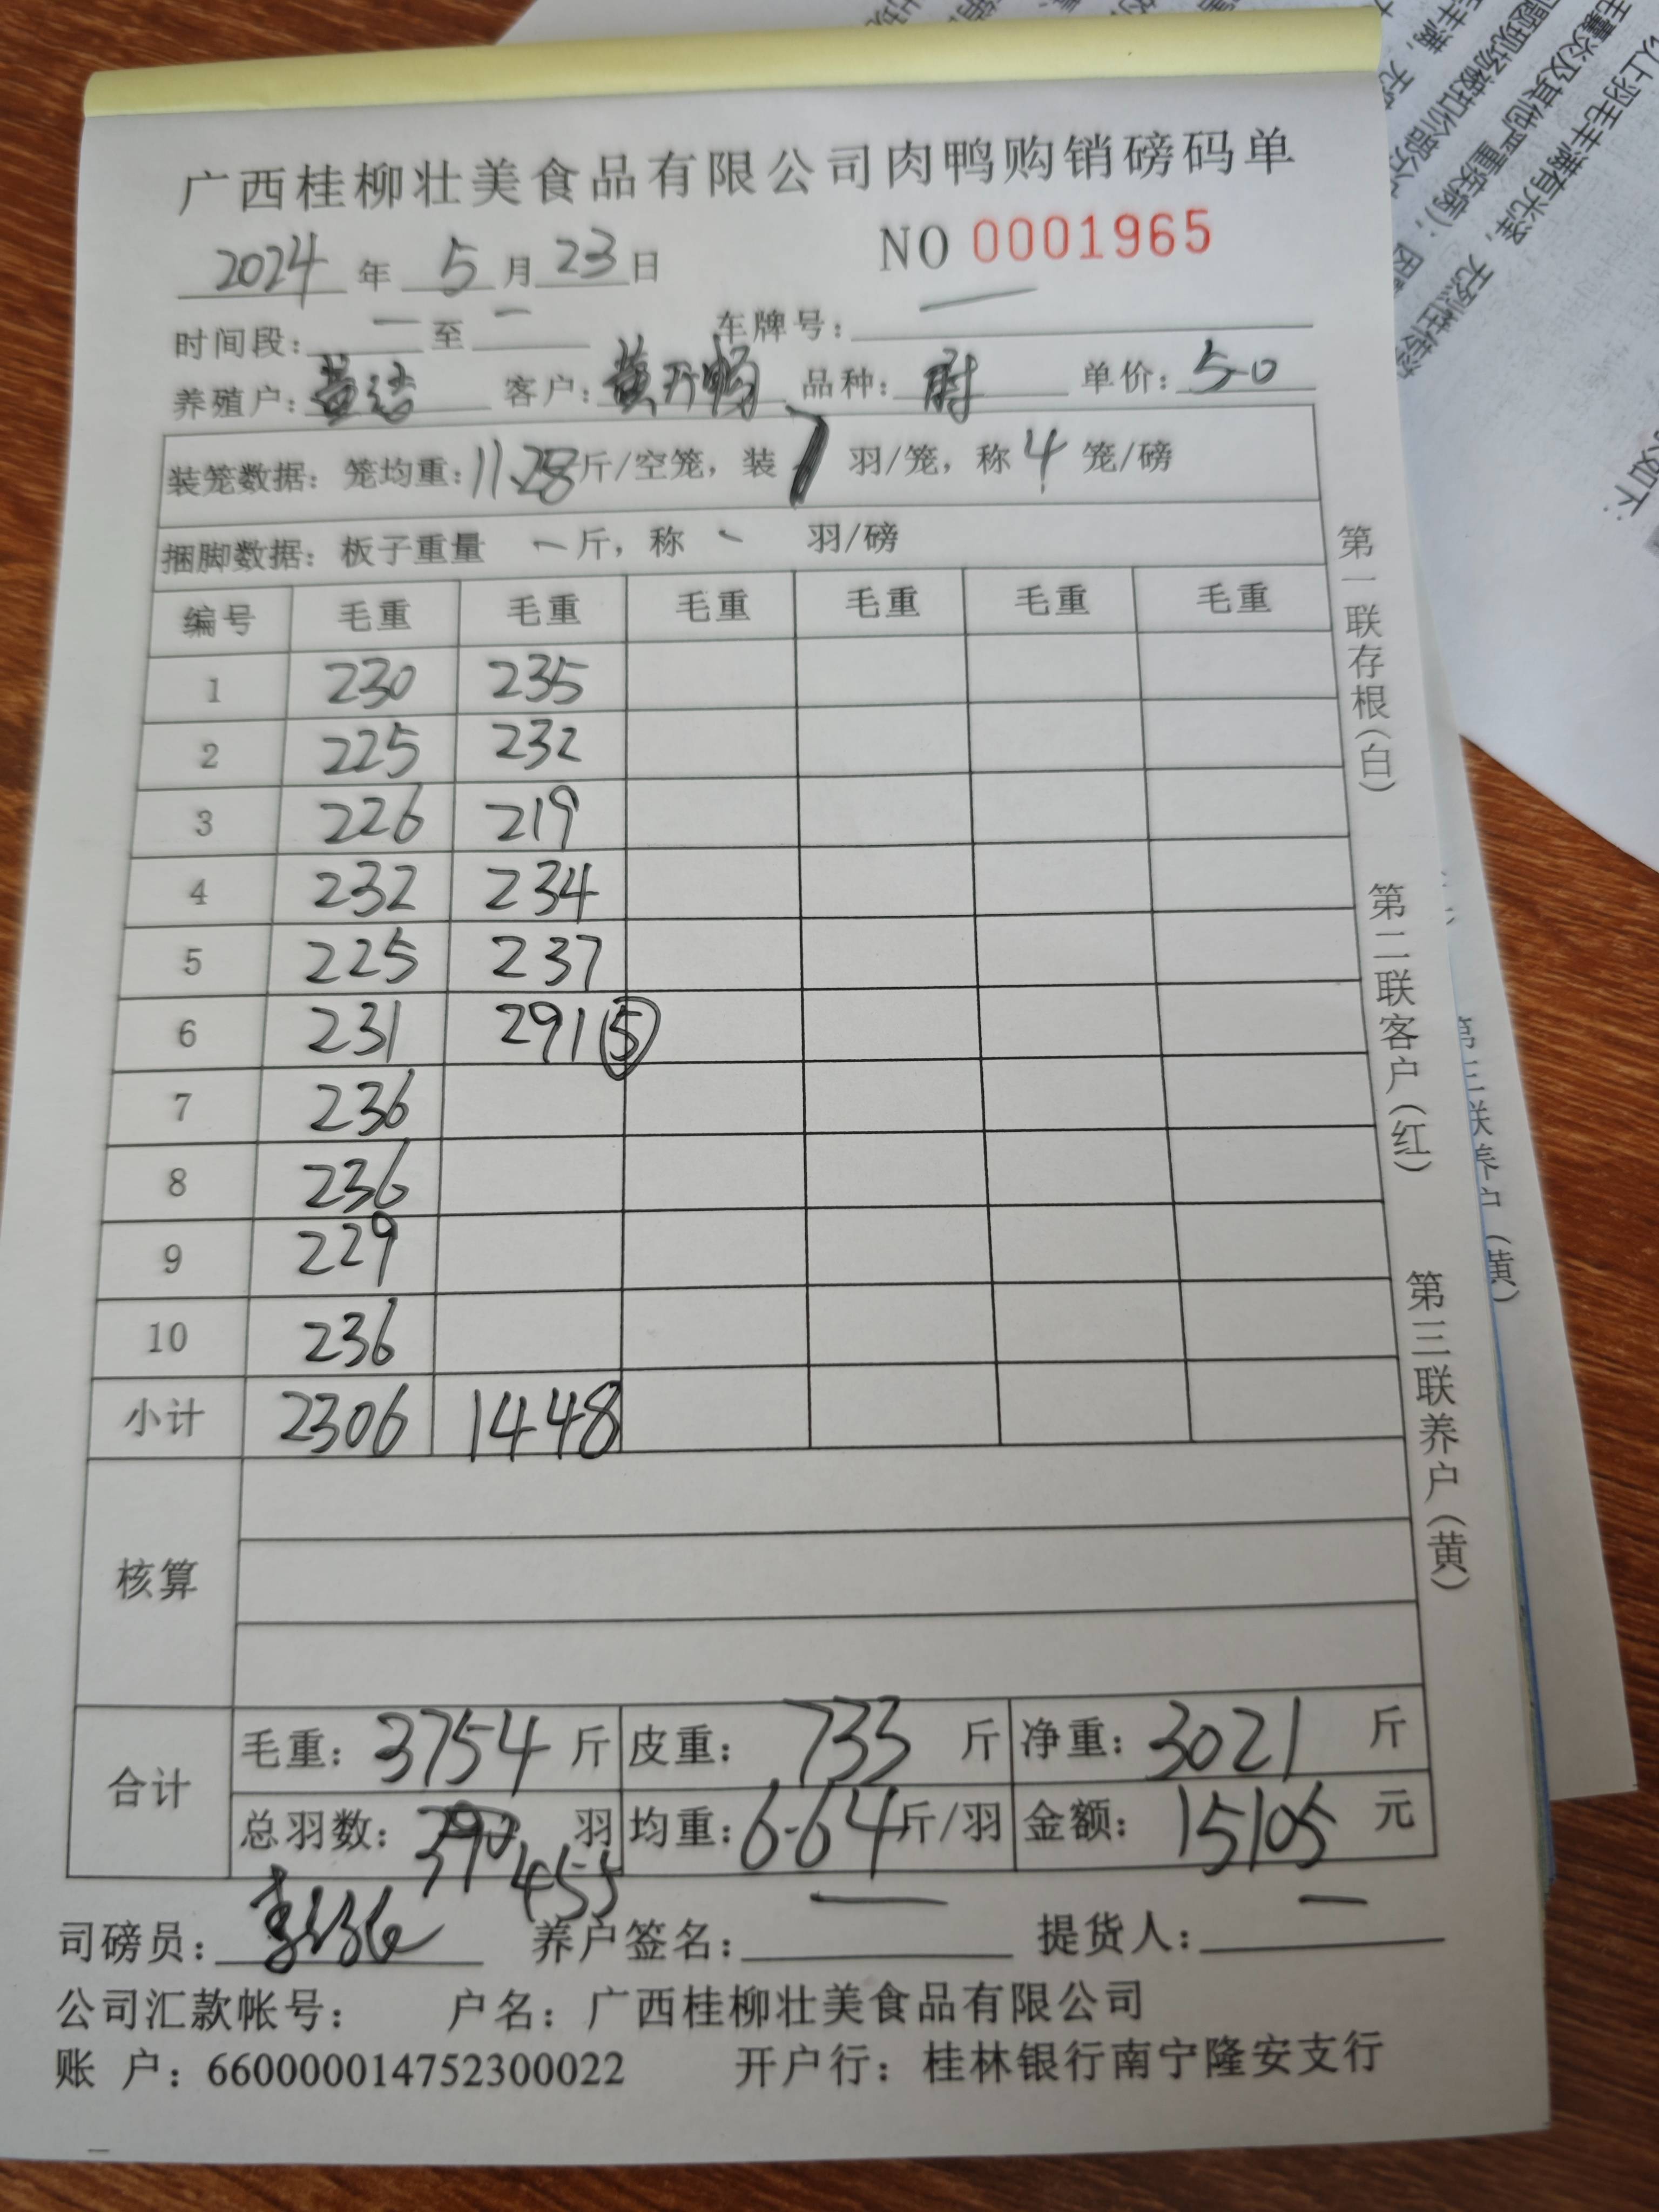 广西桂柳壮美食品有限公司肉鸭购销磅码单
2024 年 5 月 23 日 NO 0001965
时间段: 一 至 一 车牌号: —
养殖户: 黄 客户: 黄 品种: 单价: 5.0
装笼数据: 笼均重: 11.28 斤/空笼, 装 7 羽/笼, 称 4 笼/磅
捆脚数据: 板子重量 一 斤, 称 一 羽/磅
编号 毛重 毛重 毛重 毛重 毛重 毛重
1 230 235
2 225 232
3 226 219
4 232 234
5 225 237
6 231 291 ⑤
7 236
8 236
9 229
10 236
小计 2306 1448
核算
合计 毛重: 3754 斤 皮重: 733 斤 净重: 3021 斤
总羽数: 390 455 羽 均重: 6.64 斤/羽 金额: 15105 元
司磅员: 养户签名: — 提货人: —
公司汇款帐号: 户名: 广西桂柳壮美食品有限公司
账 户: 660000014752300022 开户行: 桂林银行南宁隆安支行
第一联存根(白) 第二联客户(红) 第三联养户(黄)
第三联养户(黄)
以上羽毛丰满有光泽, 无烈性传染